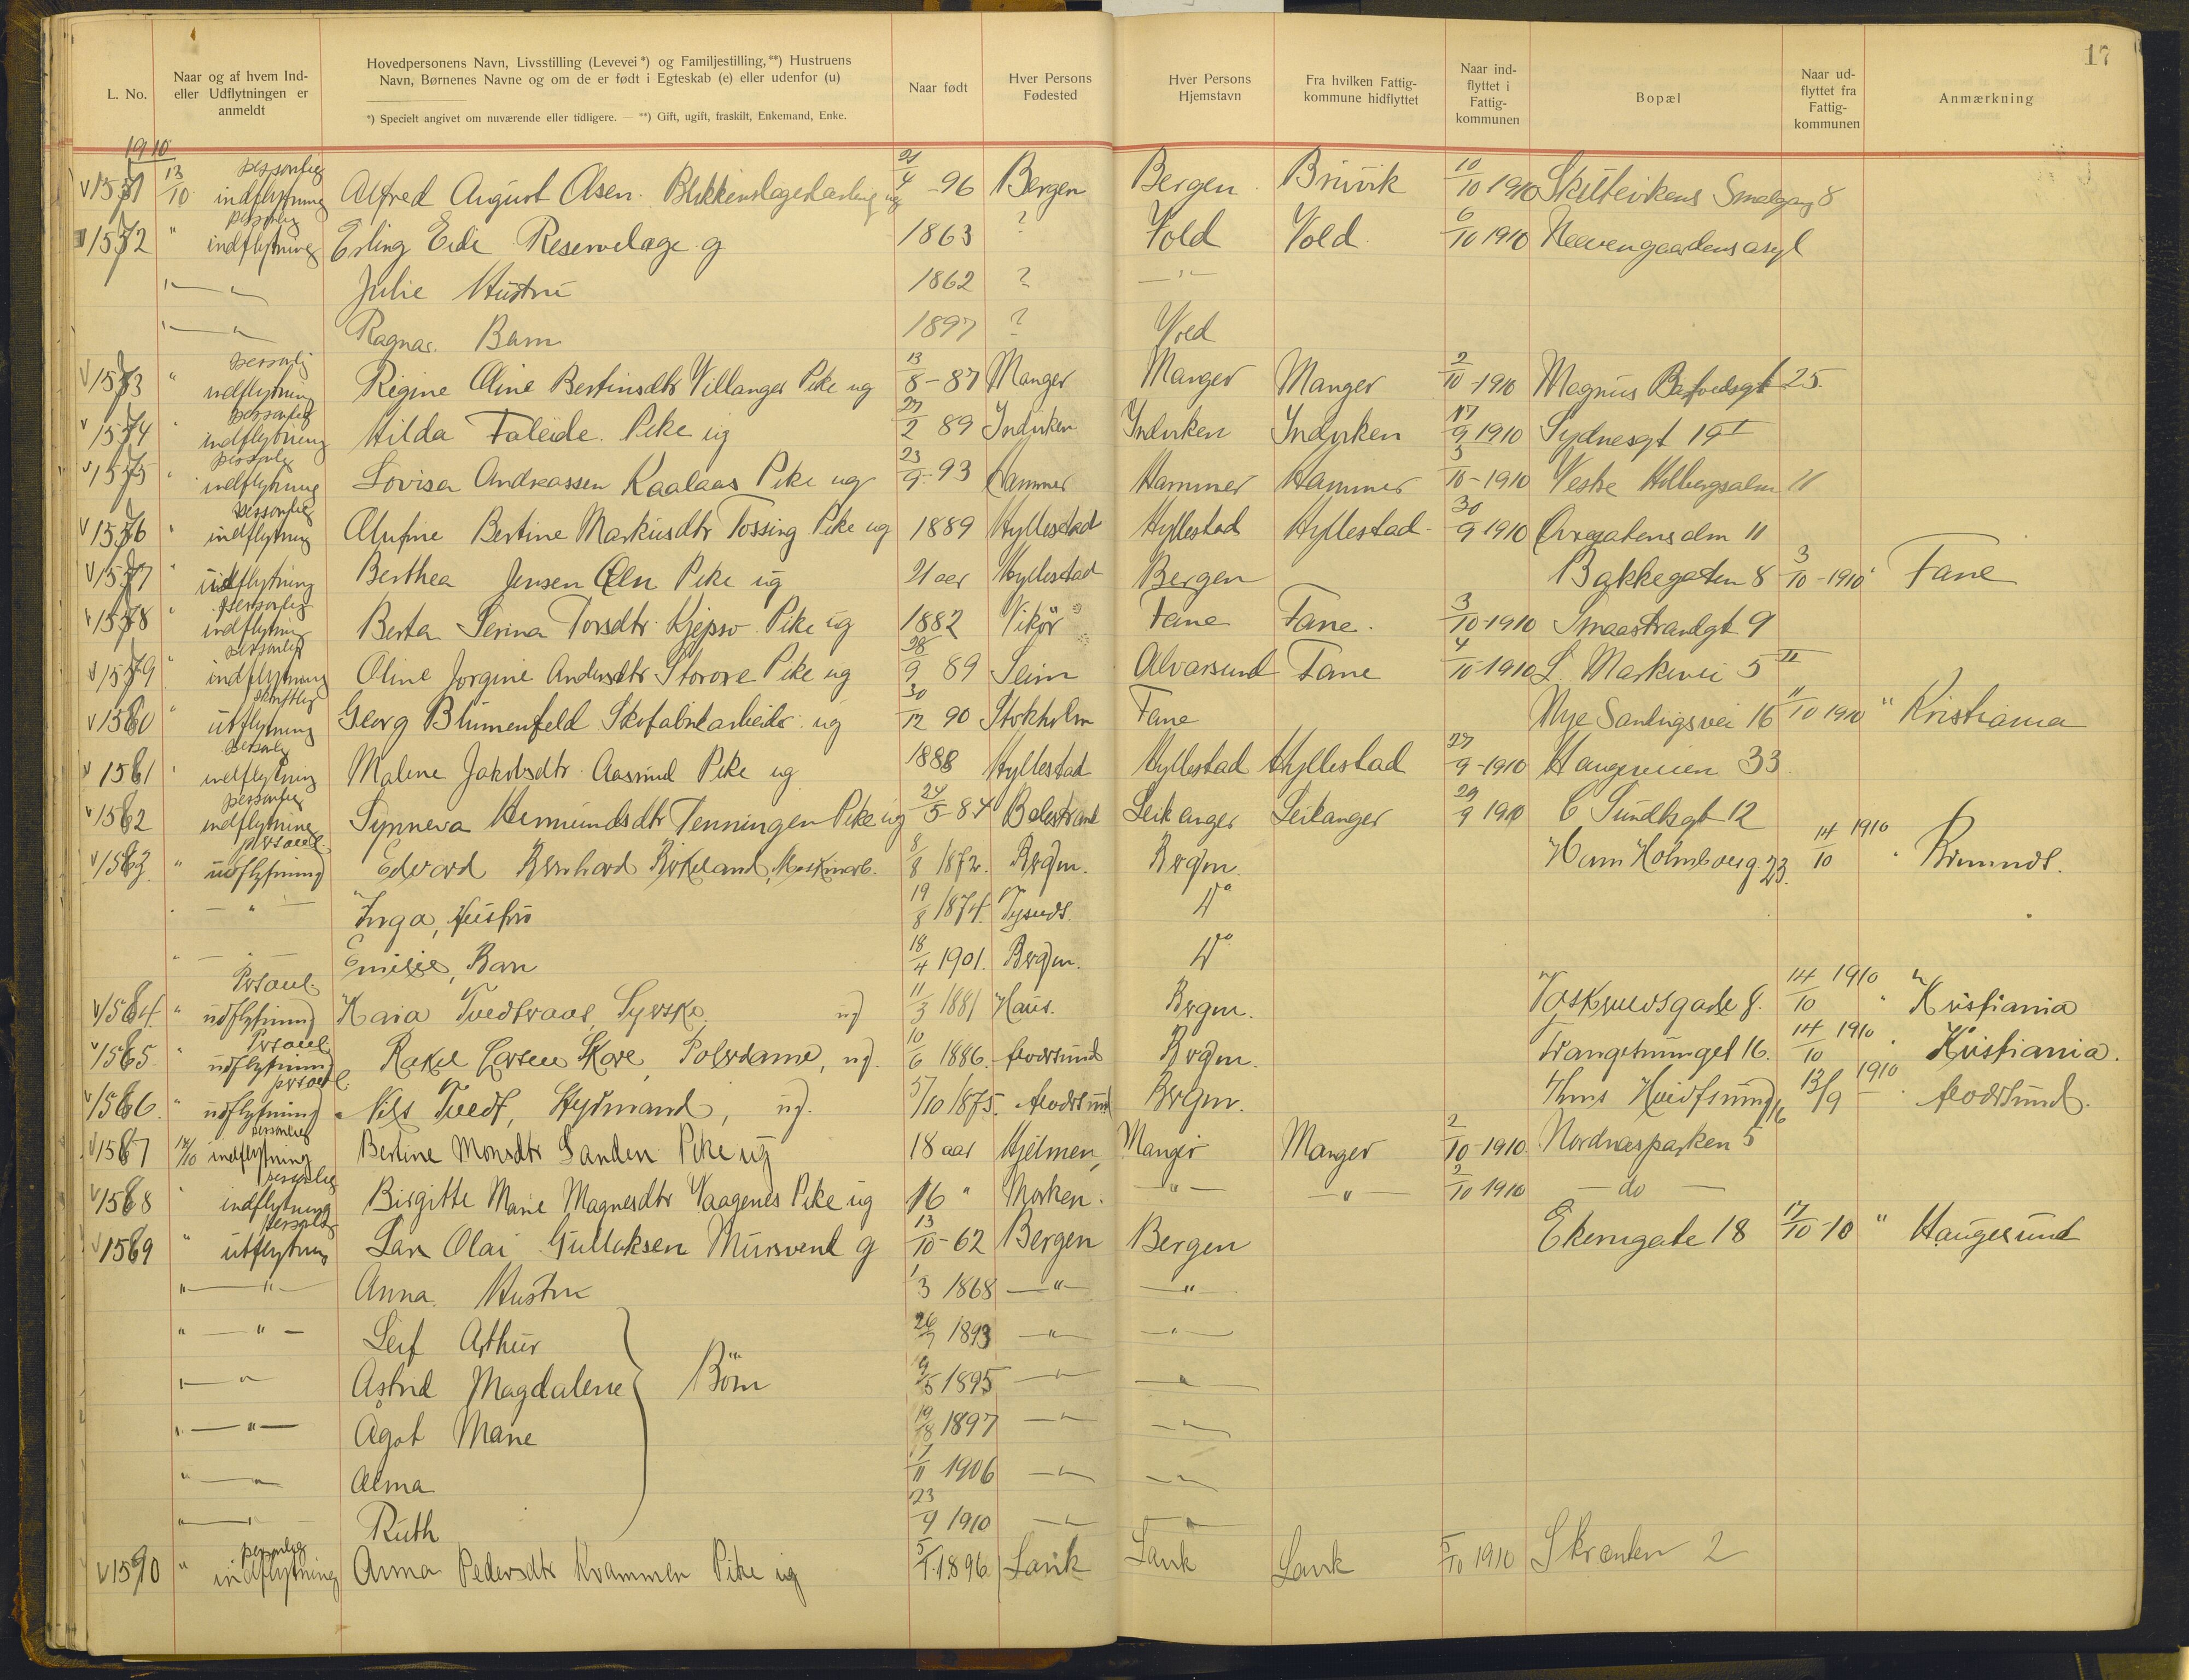 17
L. No.
Naar og af hvem Ind-
eller Udflytningen er
anmeldt
Hovedpersonens Navn, Livsstilling (Levevei *) og Familjestilling, **) Hustruens
Navn, Børnenes Navne og om de er født i Egteskab (e) eller udenfor (u)
*) Specielt angivet om nuværende eller tidligere. — **) Gift, ugift, fraskilt, Enkemand, Enke.
Naar født
Hver Persons
Fødested
Hver Persons
Hjemstavn
Fra hvilken Fattig-
kommune hidflyttet
Naar ind-
flyttet i
Fattig-
kommunen
Bopæl
Naar ud-
flyttet fra
Fattig-
kommunen
Anmærkning
1910
1571 13/10 personlig indflytning Alfred August Olsen ug 21/4 -96 Bergen Bergen Bruvik 10/10 1910 Smalgang 8
1572 " personlig indflytning Erling Eide g 1863 ? Vold Vold 6/10 1910 Neevengaardens asyl
" Julie Hustru 1862 ? "
" Ragnar Barn 1897 ? Vold
1573 " personlig indflytning Regine Oline Bertinsdtr Villanger Pike ug 13/8 - 87 Manger Manger Manger 2/10 - 1910 Magnus Barfoedsgt 25
1574 " personlig indflytning Hilda Faleide Pike ug 27/2 89 Indviken Indviken Indviken 17/9 1910 Sydnesgt 19 I
1575 " personlig indflytning Lovisa Andreassen Kaalaas Pike ug 23/9 - 93 Hammer Hammer Hammer 3/10 - 1910 Vestre Holbergsalm 11
1576 " personlig indflytning Olufine Bertine Markusdtr Tossing Pike ug 1889 Hyllestad Hyllestad Hyllestad 30/9 1910 Øvregatens alm 11
1577 " udflytning Berthea Jensen Øen Pike ug 21 aar Hyllestad Bergen Bakkegaten 8 3/10 - 1910 Fane
1578 " personlig indflytning Berta Serina Torsdtr Kjepso Pike ug 1882 Vikør Fane Fane 3/10 - 1910 Smaastrandgt 9
1579 " personlig indflytning Oline Jorgine Andersdtr Storore Pike ug 28/9 89 Seim Alvarsund Fane 4/10 - 1910 L. Markevei 5 II
1580 " skriftlig utflytning Georg Blumenfeld Skofabrikarbeider ug 30/12 90 Stokholm Fane Nye Sandvigsvei 16 11/10 1910 " Kristiania
1581 " personlig indflytning Malene Jakobsdtr Aasrund Pike ug 1888 Hyllestad Hyllestad Hyllestad 27/9 - 1910 Haugeveien 33
1582 " personlig indflytning Synneva Hermundsdtr Tenningen Pike ug 24/5 - 84 Balestrand Leikanger Leikanger 29/9 1910 C Sundtsgt 12
1583 " personl. udflytning Edvard Bernhard Birkeland, Maskinarb. 8/8 1872. Bergen. Bergen. Herm Holmboesg 23. 14/10 1910
" Inga, Hustru 19/8 1874. Do
" Emilie, Barn 18/4 1901. Bergen. Do
1584 " Personl. udflytning Kaia Tvedteraas, Syerske ug 11/3 1881 Haus. Bergen. 14/10 1910 " Kristiania
1585 " Personl. udflytning Rakel Larsen Skare, ug. 10/6 1886. Bergen. 16. 14/10 1910 " Kristiania.
1586 " personl. udflytning Nils Tvedt, Styrmand, ug. 5/10 1875. Bergen. 16 13/9 1910
1587 14/10 personlig indflytning Bertine Monsdtr Sanden Pike ug 18 aar Hjelmen, Manger Manger 2/10 - 1910 Nordnesparken 5
1588 " personlig indflytning Birgitte Marie Magnesdtr Vaagenes Pike ug 16 " Morken. " " 2/10 1910 do
1589 " personlig utflytning Lars Olai Gullaksen Mursvend g 13/10 - 62 Bergen Bergen Ekerngate 18 17/10 - 10 " Haugesund
" Anna Hustru 1/3 1868 " "
" Leif Arthur 26/7 1893 " "
" Astrid Magdalene Børn 9/5 1895 " "
" Agot Marie 19/8 1897 " "
" Alma 7/11 1906 " "
" Ruth 23/9 1910 " "
1590 " personlig indflytning Anna Pedersdtr Kvammen Pike ug 5/1 1896 Lavik Lavik Lavik 5/10 1910 Skrænten 2